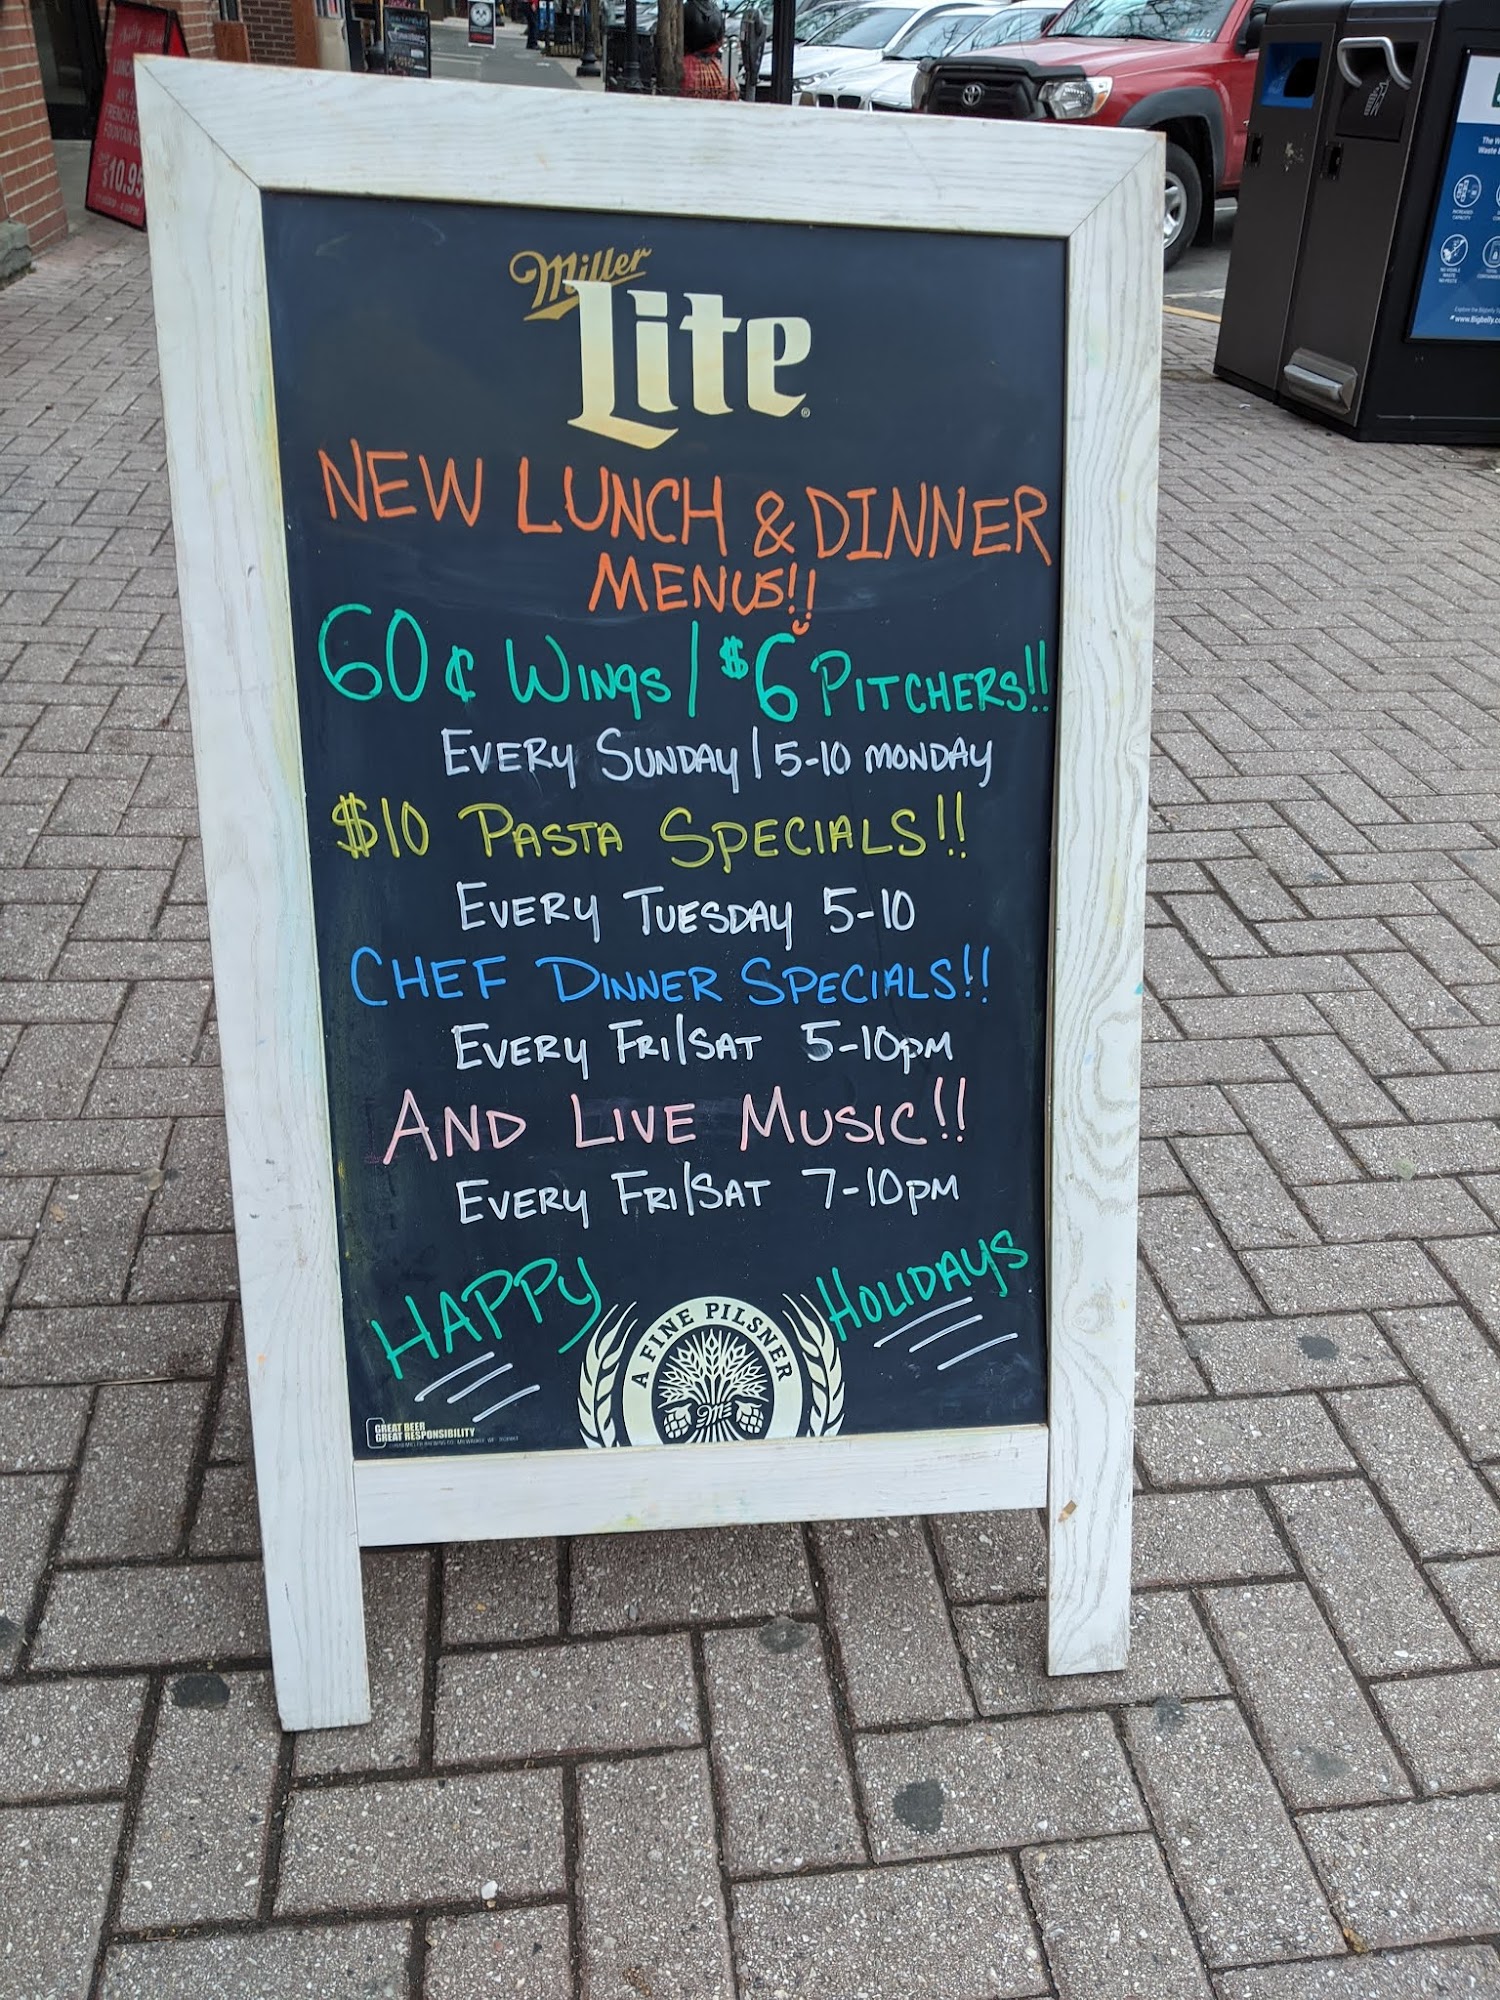 Miller
Lite
NEW LUNCH & DINNER
MENUS!!
60¢ WINGS / $6 PITCHERS!!
EVERY SUNDAY / 5-10 MONDAY
$10 PASTA SPECIALS!!
EVERY TUESDAY 5-10
CHEF DINNER SPECIALS!!
EVERY FRI/SAT 5-10PM
AND LIVE MUSIC!!
EVERY FRI/SAT 7-10PM
HAPPY HOLIDAYS
A FINE PILSNER
GREAT BEER
GREAT RESPONSIBILITY
LUNCH
FRENCH F
FOUNTAIN S
$10.95
The W
Waste